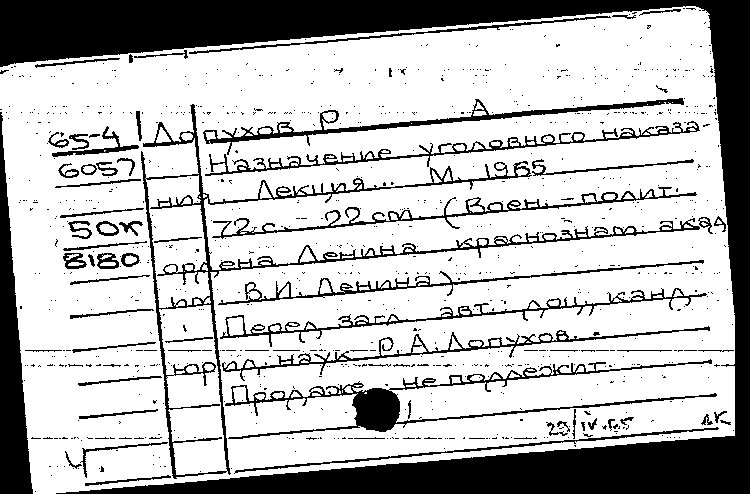 65-4 Лопухов, Р А
6057 Назначение уголовного наказа-
ния. Лекция... М., 1965
50к 72 с. 22 cm. (Воен.-полит.
8180 ордена Ленина краснознам. акад
им. В.И. Ленина).
Перед загл. авт.: доц., канд.
юрид. наук Р. А. Лопухов.
Продаже не подлежит.
29/IV.65